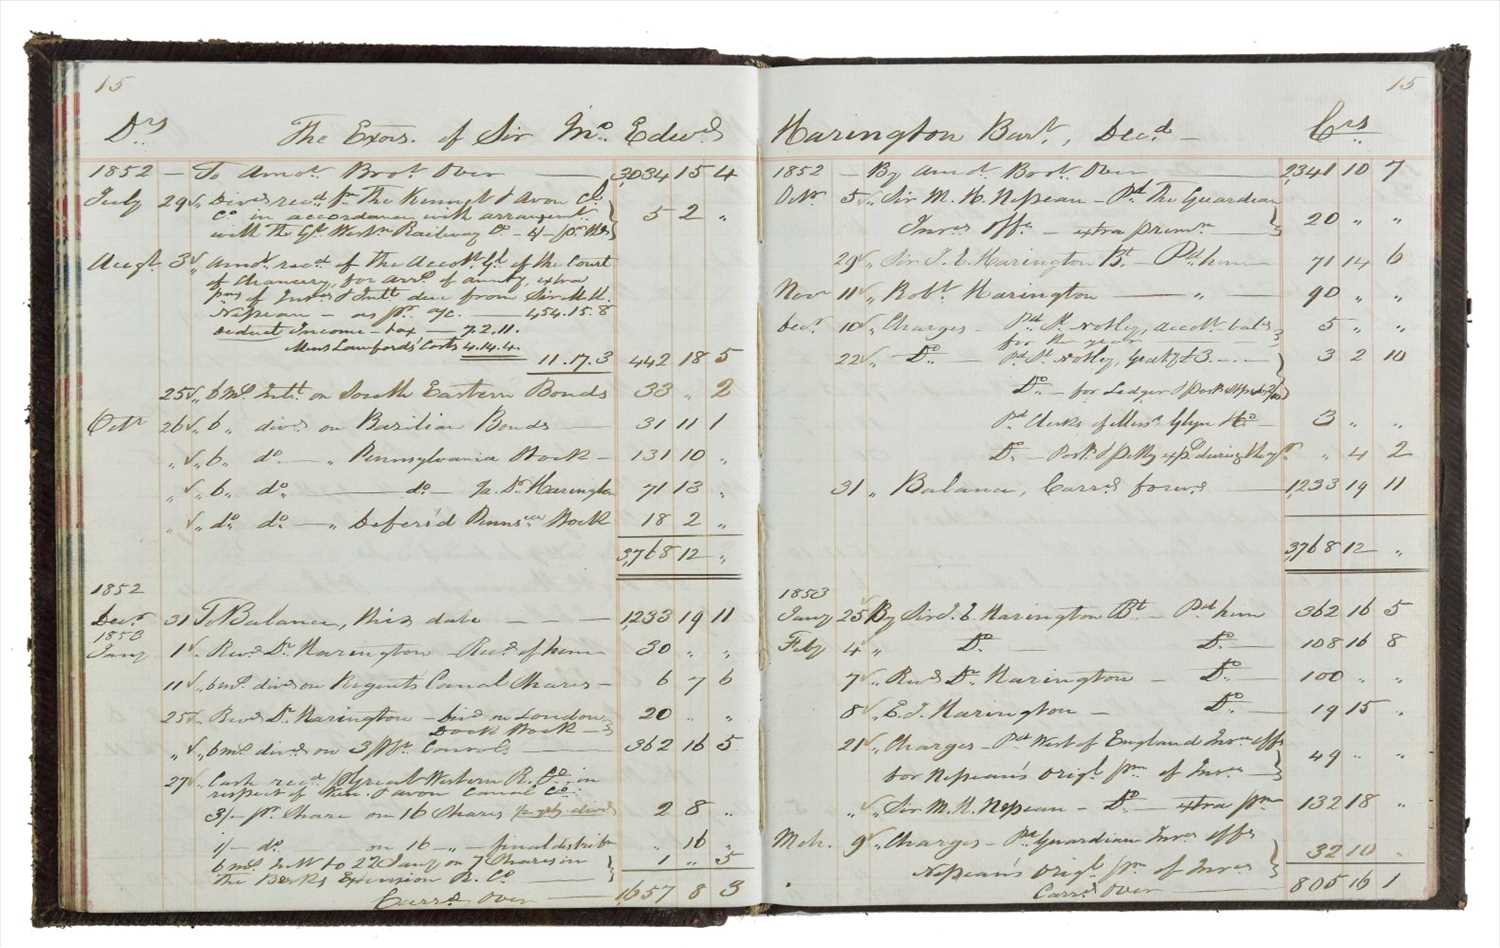 15
Drs The Exors. of Sir Jno. Edwd.
1852 — To Amot. Brot. Over — 3,034 15 4
July 29 ✓ „ Divd. recd. pr. The Kennet & Avon Cl.
Co. in accordance with arrangemt.
with The Gt. Westn. Railway Co. — 5 2 „
Augt. 3 ✓ „ Amot. recd. of the Accott. Gl. of the Court
of Chancery, for arrs. of annuity, extra
pms. of Insces. & Intt. due from Sir M. H.
Nepean — as pr. a/c. — 454.15.8
Deduct Income tax — 7.2.11.
Messrs Lawfords' Costs 4.14.4.
11.17.3 442 18 5
25 ✓ „ 6 mos. Intt. on South Eastern Bonds 33 „ 2
Octr. 26 ✓ „ 6 „ divds. on Brazilian Bonds — 31 11 1
„ ✓ „ 6 „ do. — „ Pennsylvania Stock — 131 10 „
„ ✓ „ 6 „ do. — do. — Dr. Harington 71 13 „
„ ✓ „ do. do. — „ Deferr'd Penns. Stock 18 2 „
3,768 12 „
1852
Decr. 31 To Balance, this date — — — 1,233 19 11
1853
Jany 1 ✓ „ Revd. Dr. Harington — Recd. of him — 30 „ „
11 ✓ „ 6 mos. divds. on Regents Canal Shares — 6 7 6
25 ✓ „ Revd. Dr. Harington — divd. on London
Dock Stock — 20 „ „
„ ✓ „ 6 mos. divds. on 3 p Ct. Consols — 362 16 5
27 ✓ „ Cash recd. Great Western R. Co. in
respect of Ken. & Avon Canal Co.
3/- pr. Share on 16 Shares 2 8 „
1/- do. — on 16 — „ — final distribn. „ 16 „
6 mos. Intt. to 22 Jany on 7 Shares in
The Berks Extension R. Co. — 1 „ 5
Carrd. Over — 1,657 8 3
15
Harington Bart., Decd. — Crs
1852 — By Amot. Brot. Over — 2,341 10 7
Octr. 5 ✓ „ Sir M. H. Nepean — Pd. The Guardian
Insce. Offe. — extra premm. — 20 „ „
29 ✓ „ Sir J. E. Harington Bt. — Pd. him — 71 14 6
Novr 11 ✓ „ Robt. Harington — „ — 90 „ „
Decr. 10 ✓ „ Charges — Pd. St. Notley, accott. bal.
for the year — 5 „ „
22 ✓ „ Do. — Pd. St. Notley, Graty £3. — 3 2 10
Do. — for Ledger
Pd. Clerks of Messrs. Glyn & Co — 3 „ „
Do. — Post. & petty exps. during the yr. „ 4 2
31 „ Balance, Carrd. forwd. — 1,233 19 11
3,768 12 „
1853
Jany 25 ✓ By Sir J. E. Harington Bt. — Pd. him 362 16 5
Feby 4 ✓ „ Do. — Do. — 108 16 8
7 ✓ „ Revd. Dr. Harington — Do. — 100 „ „
8 ✓ „ E. J. Harington — Do. — 19 15 „
21 ✓ „ Charges — Pd. West of England Insce. Offe.
for Nepean's origl. pm. of Insce. — 49 „ „
„ ✓ „ Sir M. H. Nepean — Do. — extra pm 132 18 „
Mch. 9 ✓ „ Charges — Pd. Guardian Insce. Offe.
Nepean's origl. pm. of Insce. 32 10 „
Carrd. Over — 805 16 1